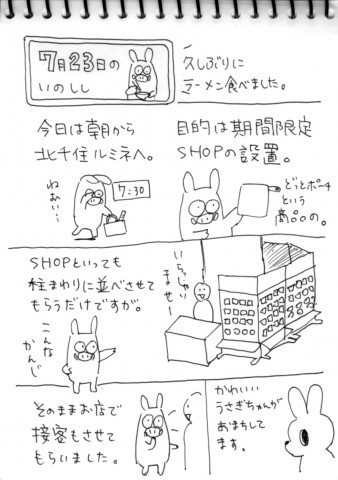 7月23日の
いのしし
久しぶりに
ラーメン食べました。
今日は朝から
北千住ルミネへ。
ねむい…
7:30
目的は期間限定
SHOPの設置。
どっとポーチ
という
商品の。
SHOPといっても
柱まわりに並べさせて
もらうだけですが。
こんな
かんじ
いらっしゃい
ませー
そのままお店で
接客もさせて
もらいました。
かわいい
うさぎちゃんが
おまちして
ます。